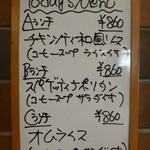 Today's Menu
Aランチ ¥860
(コーヒー スープ ライス付)
Bランチ ¥860
スパゲッティナポリタン
(コーヒースープ サラダ付)
Cランチ ¥860
オムライス